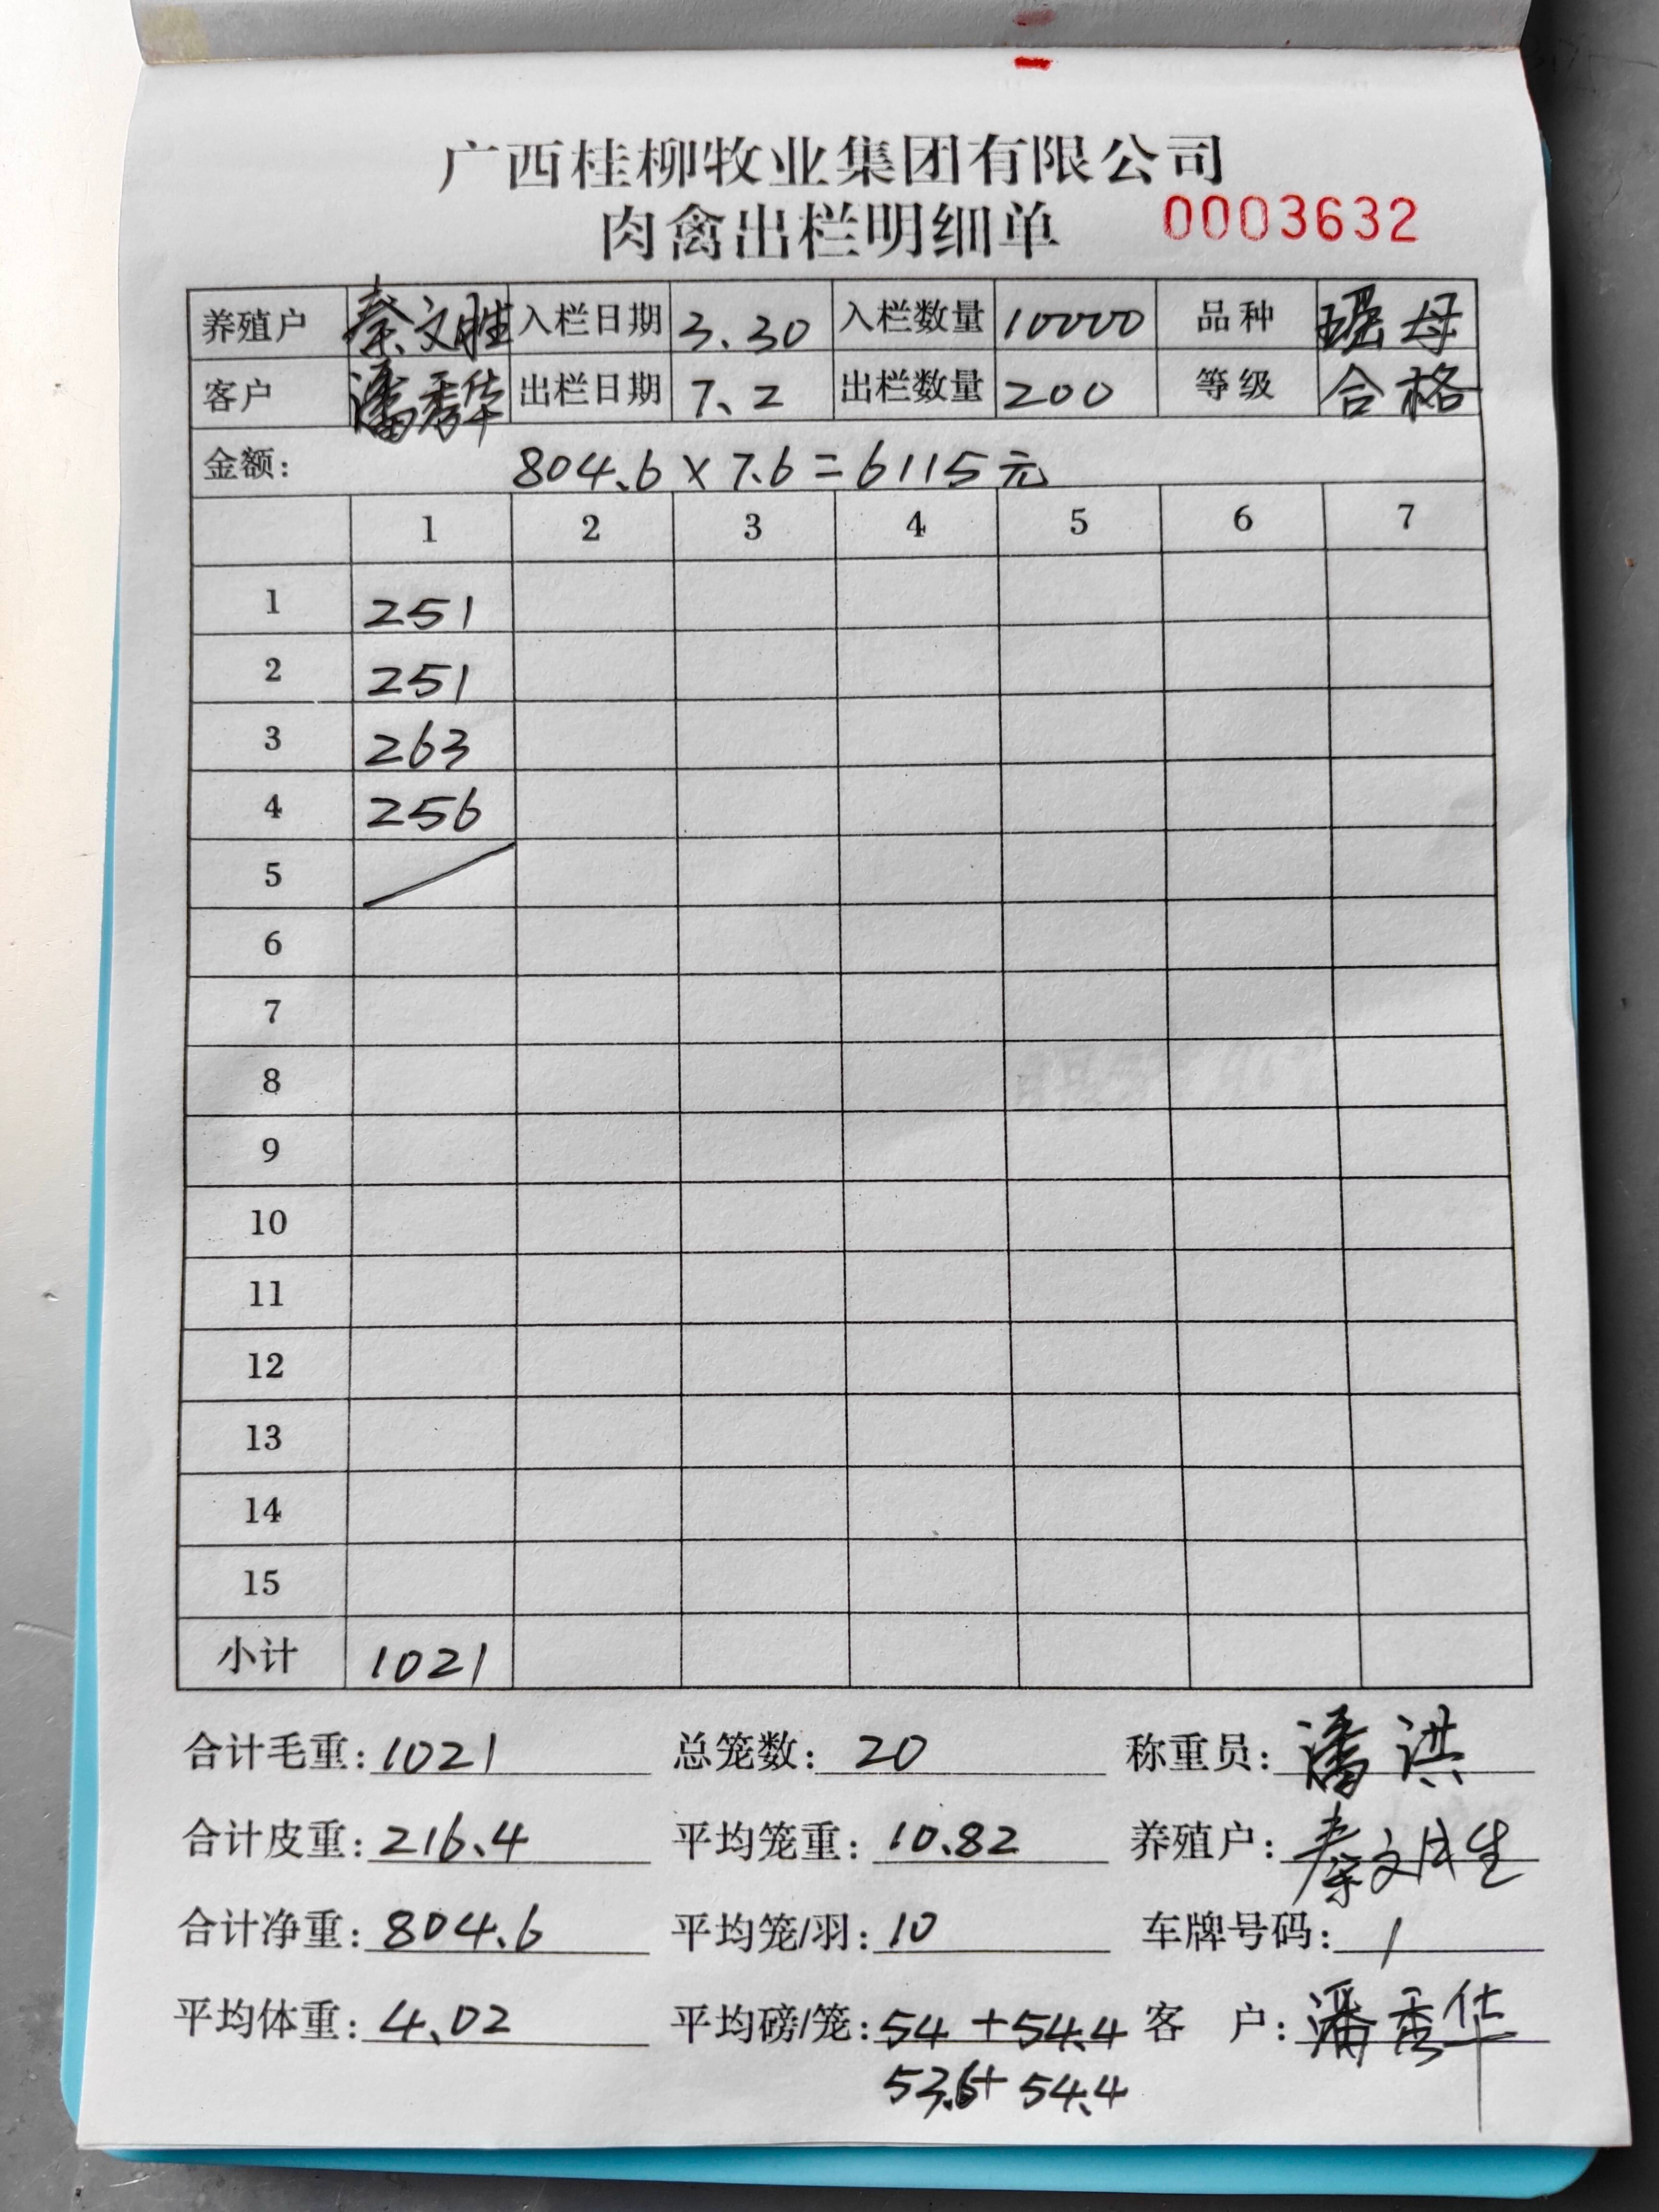 广西桂柳牧业集团有限公司
肉禽出栏明细单 0003632
养殖户 秦文胜 入栏日期 3.30 入栏数量 10000 品种 瑶母
客户 潘秀华 出栏日期 7.2 出栏数量 200 等级 合格
金额: 804.6×7.6=6115元
1 2 3 4 5 6 7
1 251
2 251
3 263
4 256
5
6
7
8
9
10
11
12
13
14
15
小计 1021
合计毛重:1021 总笼数:20 称重员:潘洪
合计皮重:216.4 平均笼重:10.82 养殖户:秦文胜
合计净重:804.6 平均笼/羽:10 车牌号码:/
平均体重:4.02 平均磅/笼:54+54.4 客 户:潘秀华
53.6+54.4